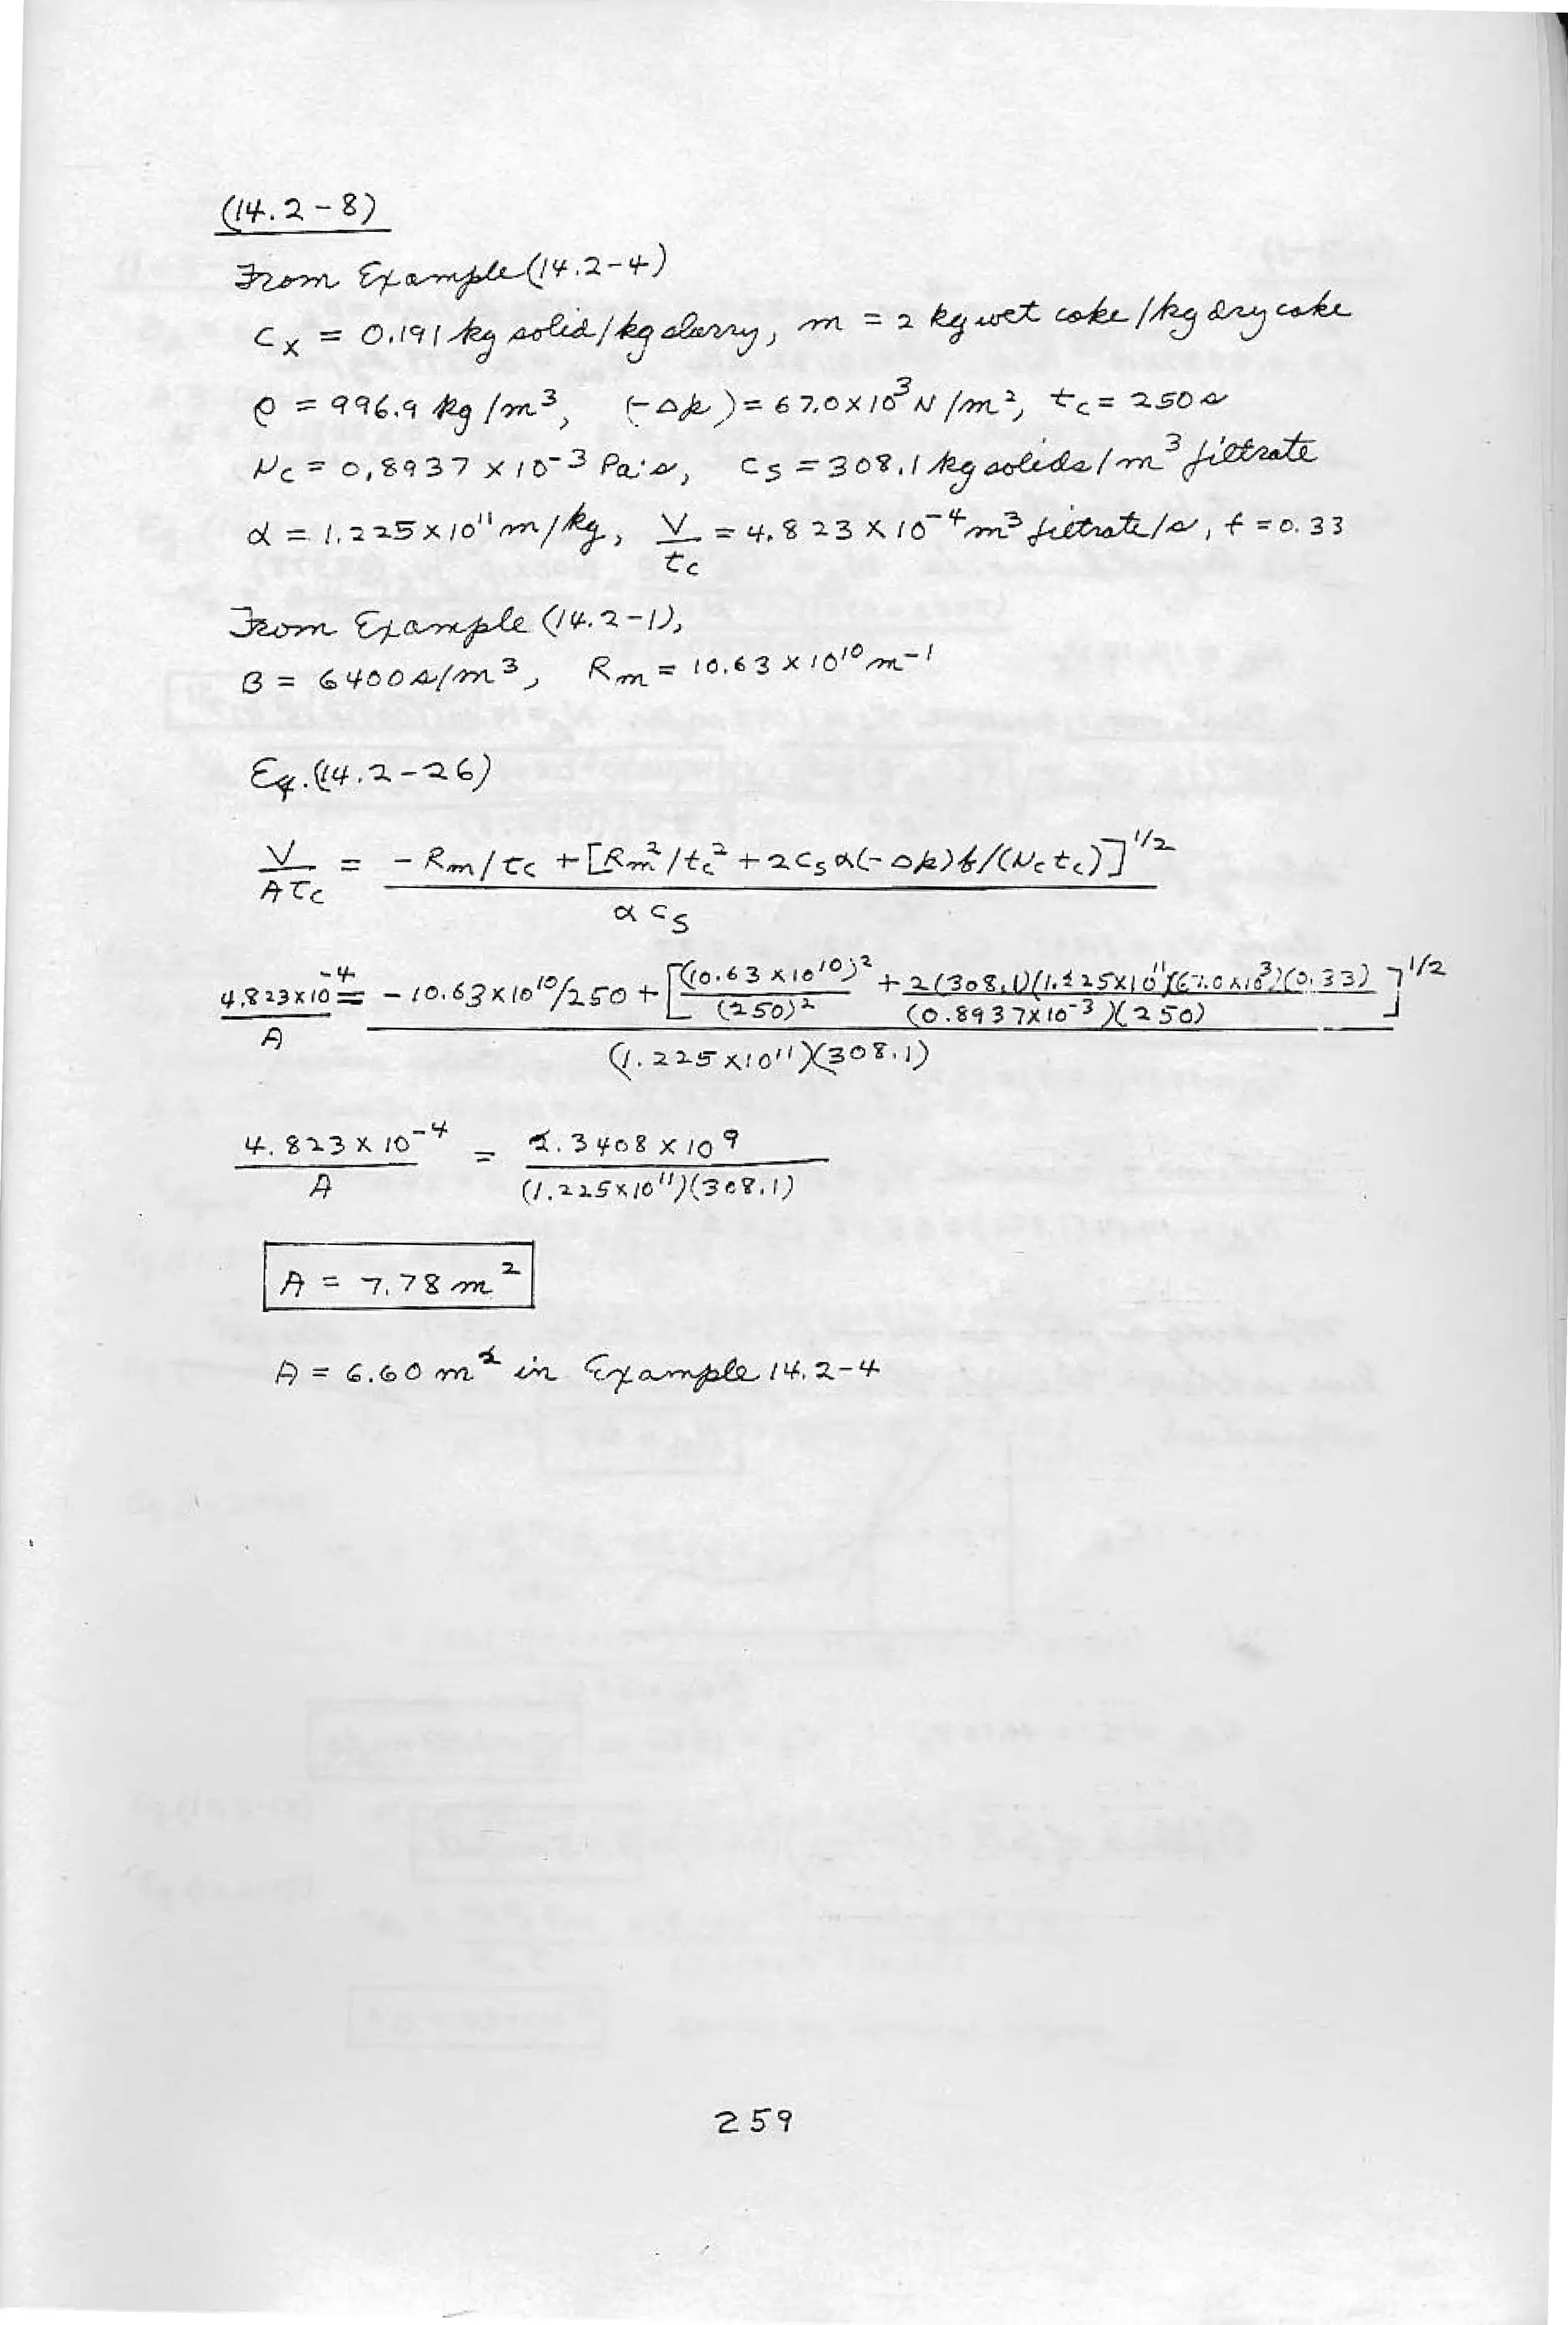 (14.2-8)
From Example (14.2-4)
Cx = 0.191 kg solid/kg slurry, m = 2 kg wet cake/kg dry cake
ρ = 996.9 kg/m³, (-Δp) = 67.0×10³ N/m², tc = 250 s
μc = 0.8937 × 10⁻³ Pa·s, cs = 308.1 kg solids/m³ filtrate
α = 1.225×10¹¹ m/kg, V/tc = 4.823 × 10⁻⁴ m³ filtrate/s, f = 0.33
From Example (14.2-1),
B = 6400 s/m³, Rm = 10.63 × 10¹⁰ m⁻¹
Eq. (14.2-26)
V/(A tc) = (-Rm/tc + [Rm²/tc² + 2csα(-Δp)f/(μctc)]^1/2)/(α cs)
4.823×10⁻⁴/A = (-10.63×10¹⁰/250 + [(10.63×10¹⁰)²/(250)² + 2(308.1)(1.225×10¹¹)(67.0×10³)(0.33)/((0.8937×10⁻³)(250))]^1/2)/((1.225×10¹¹)(308.1))
4.823×10⁻⁴/A = 2.3408×10⁹/((1.225×10¹¹)(308.1))
A = 7.78 m²
A = 6.60 m² in Example 14.2-4
259